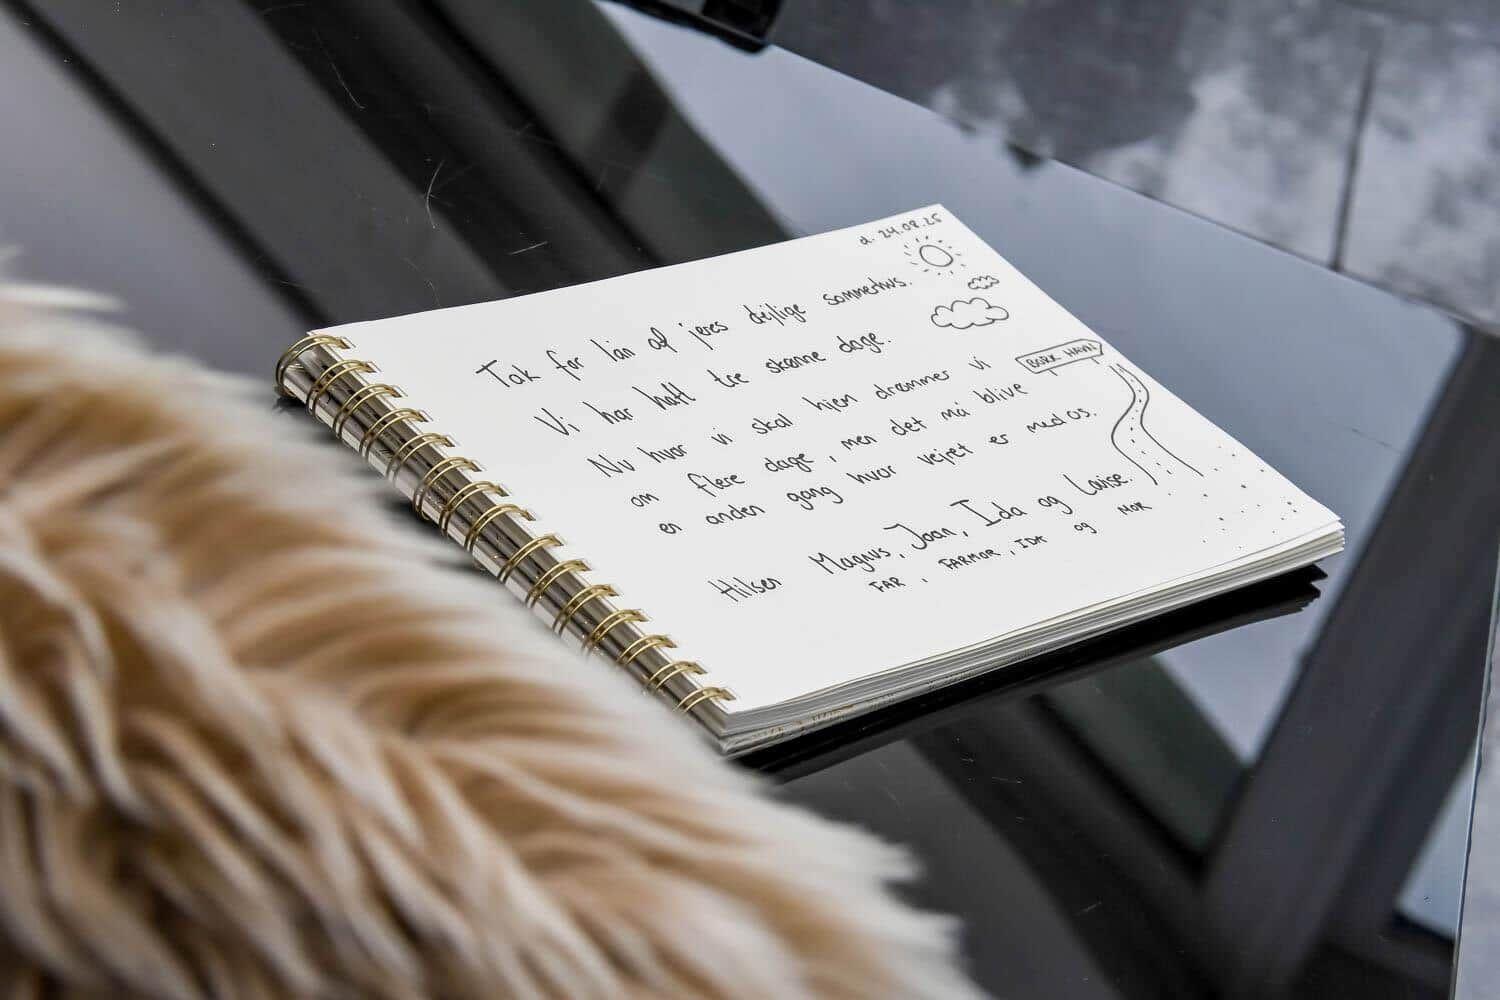 d. 24.08.25
Tak for lån af jeres dejlige sommerhus.
Vi har haft tre skønne dage.
Nu hvor vi skal hjem drømmer vi
om flere dage, men det må blive
en anden gang hvor vejret er med os.
BORK HAVN
Hilsen Magnus, Joan, Ida og Louise.
FAR, FARMOR, IDA og MOR